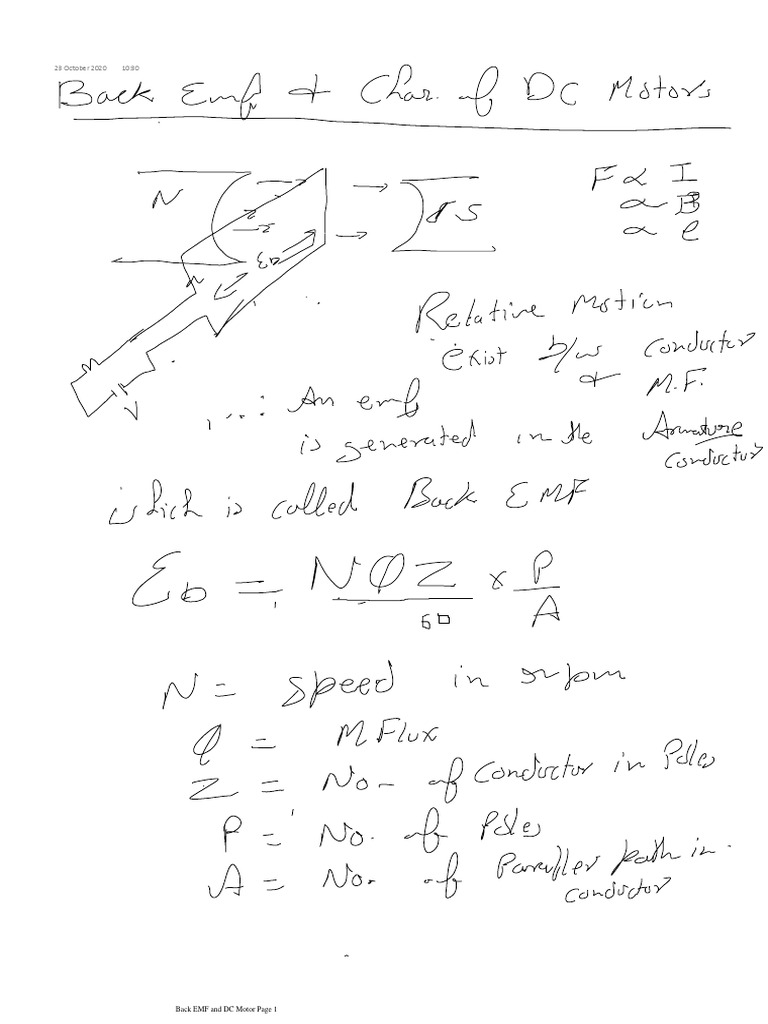 28 October 2020 10:80
Back Emf & Char. of DC Motors
N
S
F ∝ I
∝ B
∝ l
Eb
V
Relative Motion
exist b/w conductor
& M.F.
An emf
is generated in the Armature
conductor
which is called Back EMF
Eb = NØZ/60 × P/A
N = speed in rpm
Ø = M Flux
Z = No. of Conductor in Poles
P = No. of Poles
A = No. of Parallel path in
conductor
Back EMF and DC Motor Page 1